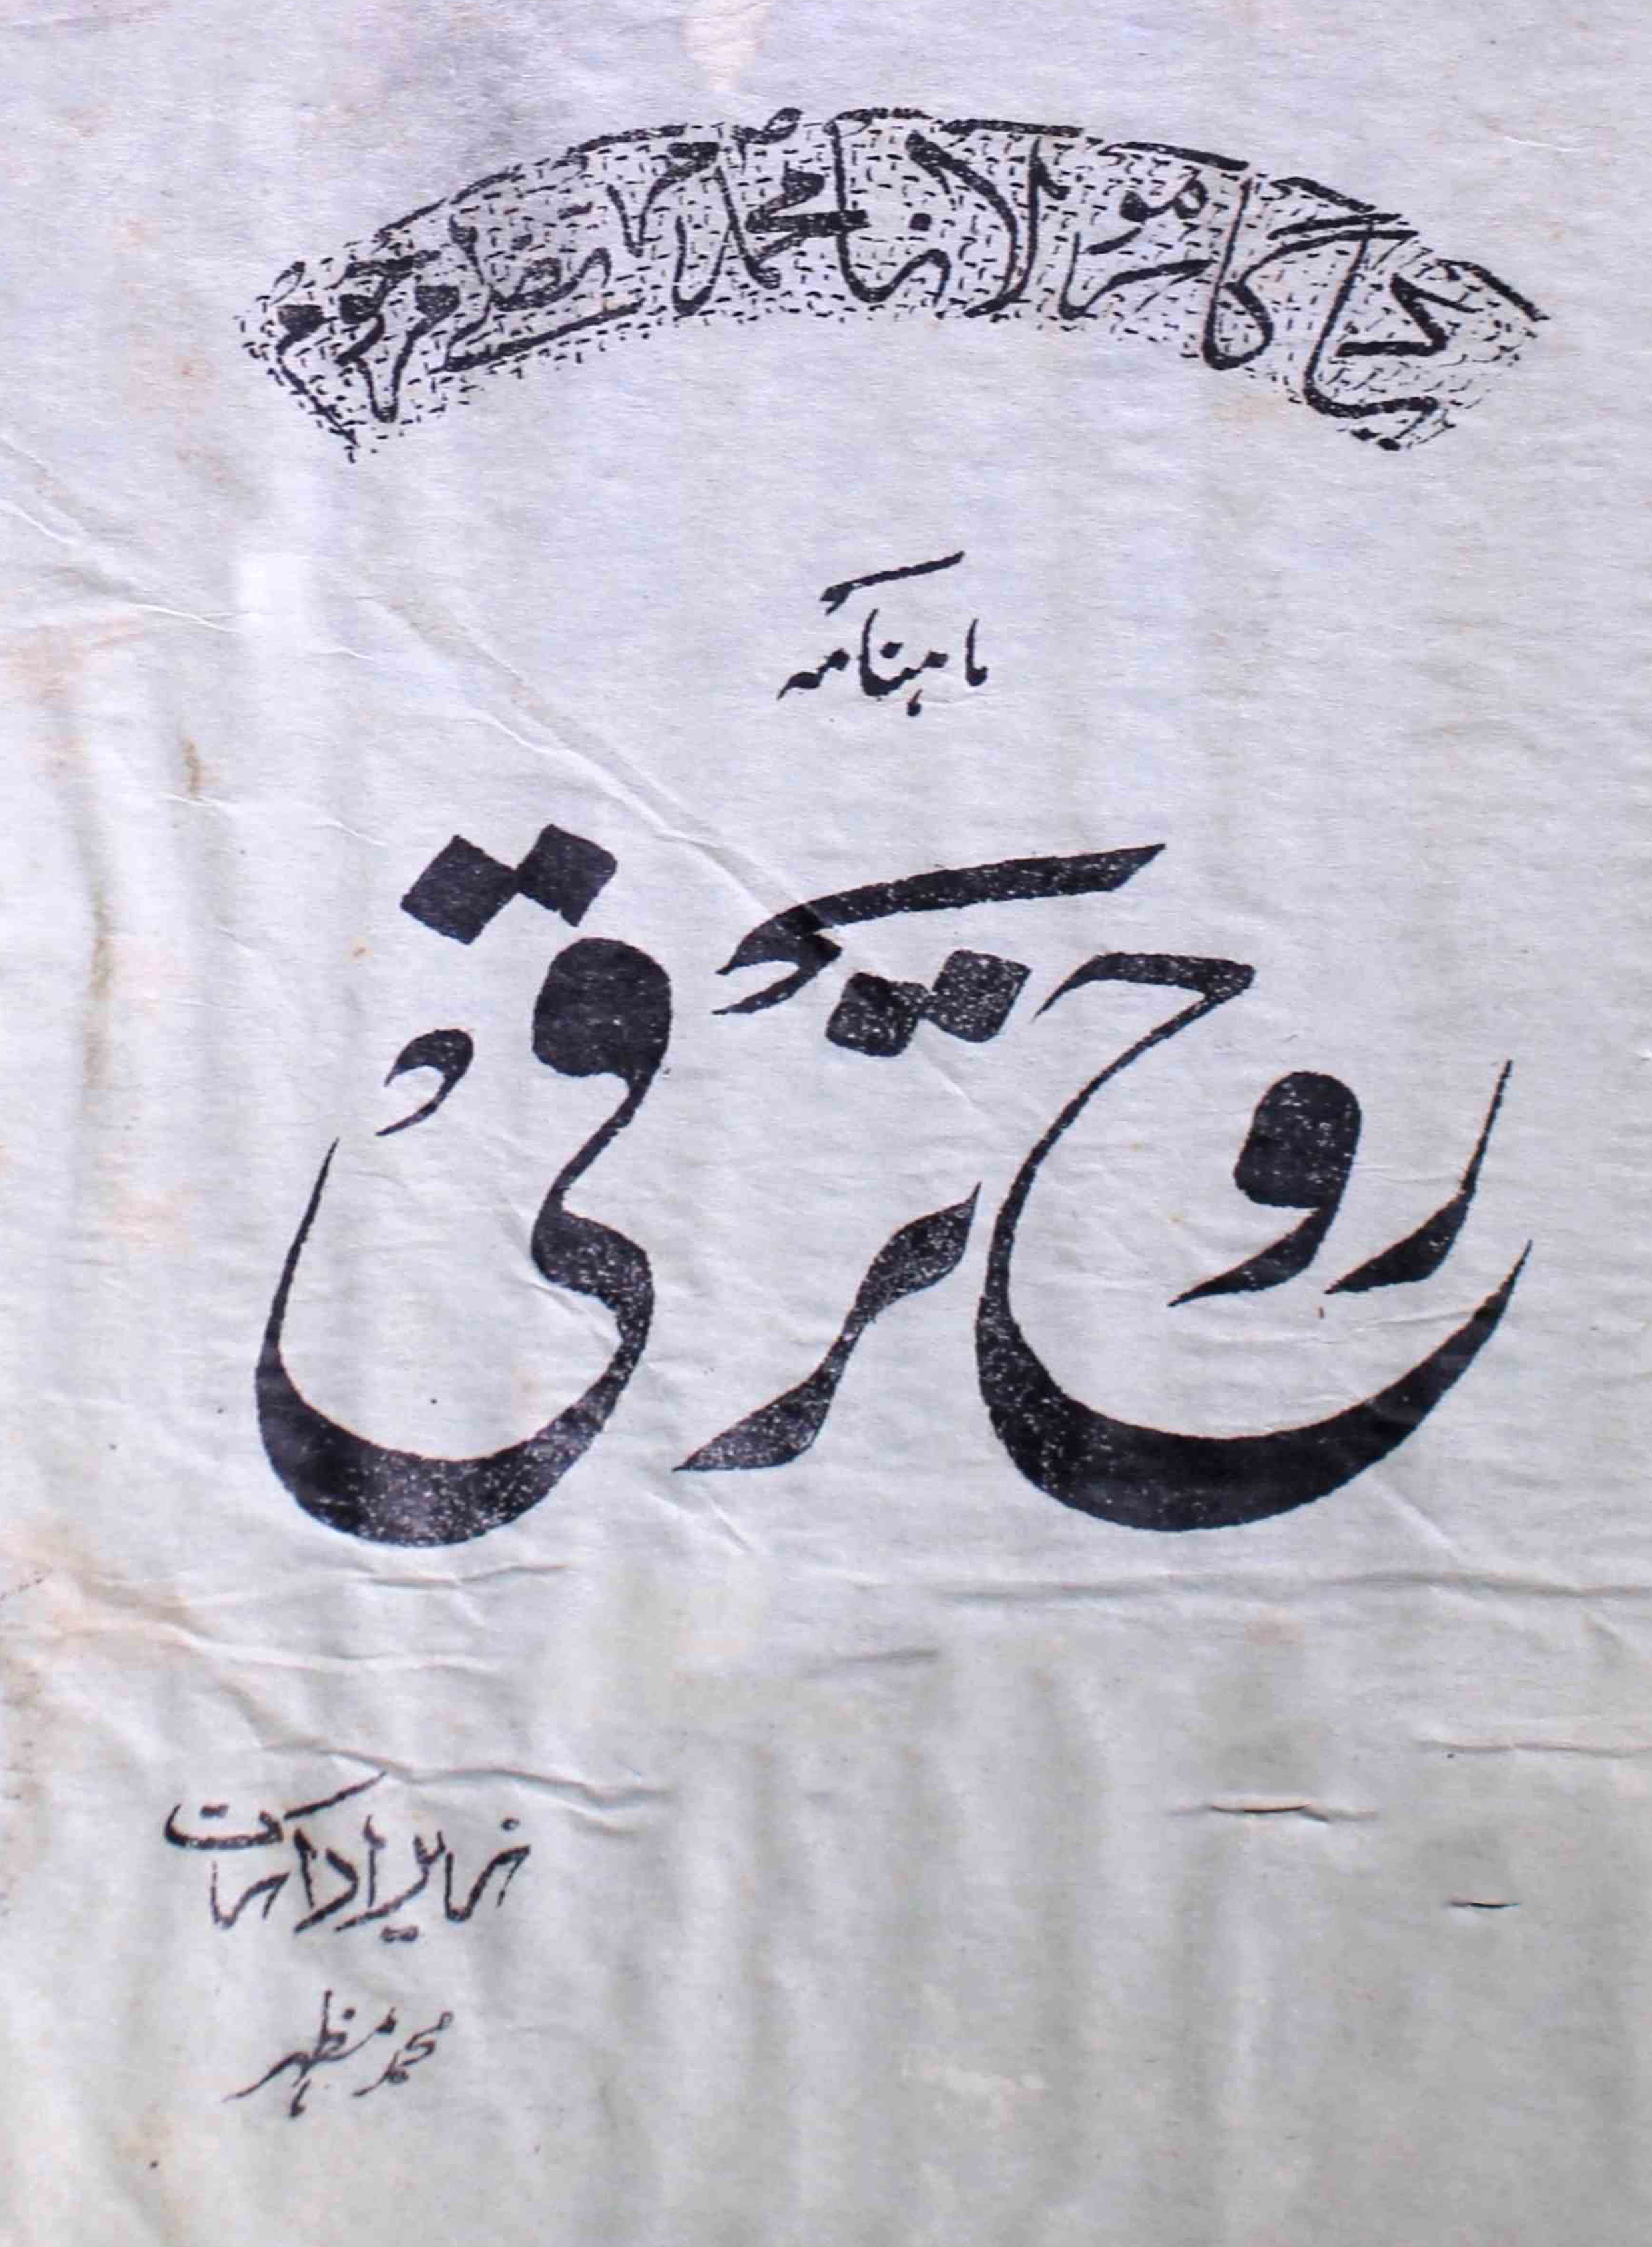 بیادگار مولانا محمد مصطفےٰ مرحوم
ماہنامہ
روح ترقی
زیر ادارت
محمد مظہر